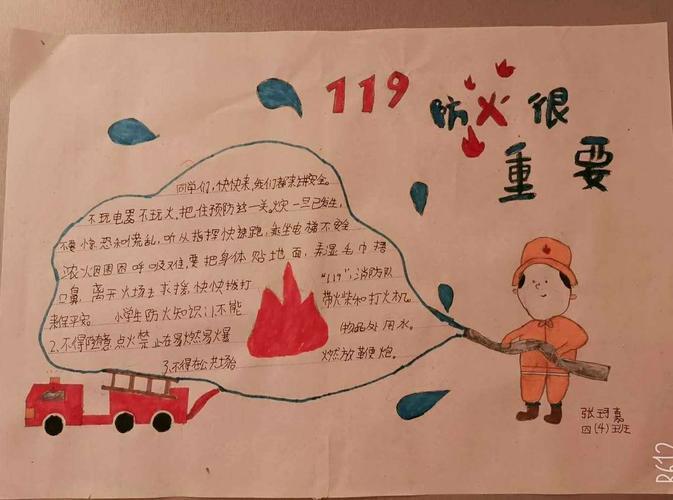 119
防火很
重要
同学们，快快来，我们都来讲安全。
不玩电器不玩火，把住预防第一关。火灾一旦已发生，
不要惊恐和慌乱，听从指挥快速跑，乘坐电梯不安全
浓火烟困因呼吸难，要把身体贴地面，弄湿毛巾捂
口鼻，离开火场去求援，快快拨打"119"，消防队
来保平安。小学生防火知识：1.不能带火柴和打火机。
2.不得随意点火禁止在易燃易爆物品处用水。
3.不得在公共场合燃放鞭炮。
张
嘉
四(4)班
B612